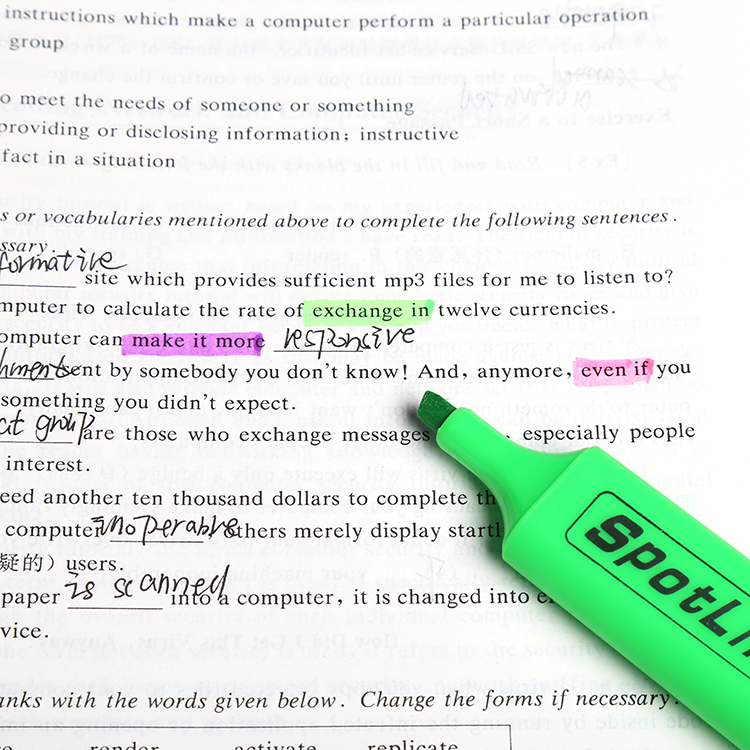 instructions which make a computer perform a particular operation
group
o meet the needs of someone or something
providing or disclosing information; instructive
fact in a situation
s or vocabularies mentioned above to complete the following sentences.
ssary.
formative site which provides sufficient mp3 files for me to listen to?
mputer to calculate the rate of exchange in twelve currencies.
omputer can make it more responsive
hments sent by somebody you don't know! And, anymore, even if you
something you didn't expect.
ct group are those who exchange messages especially people
interest.
eed another ten thousand dollars to complete th
computer inoperable others merely display startl
疑的) users.
paper is scanned into a computer, it is changed into e
vice.
anks with the words given below. Change the forms if necessary.
render activate replicate
SpotLi